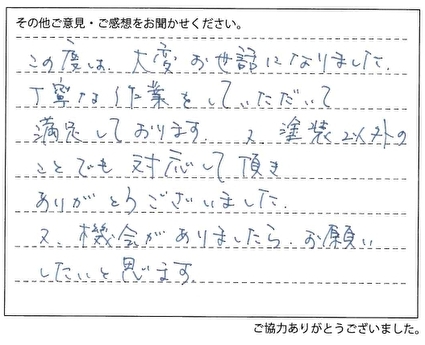 その他ご意見・ご感想をお聞かせください。
この度は、大変お世話になりました。
丁寧な作業をしていただいて
満足しております。又、塗装以外の
ことでも対応して頂き
ありがとうございました。
又、機会がありましたら、お願い
したいと思います。
ご協力ありがとうございました。